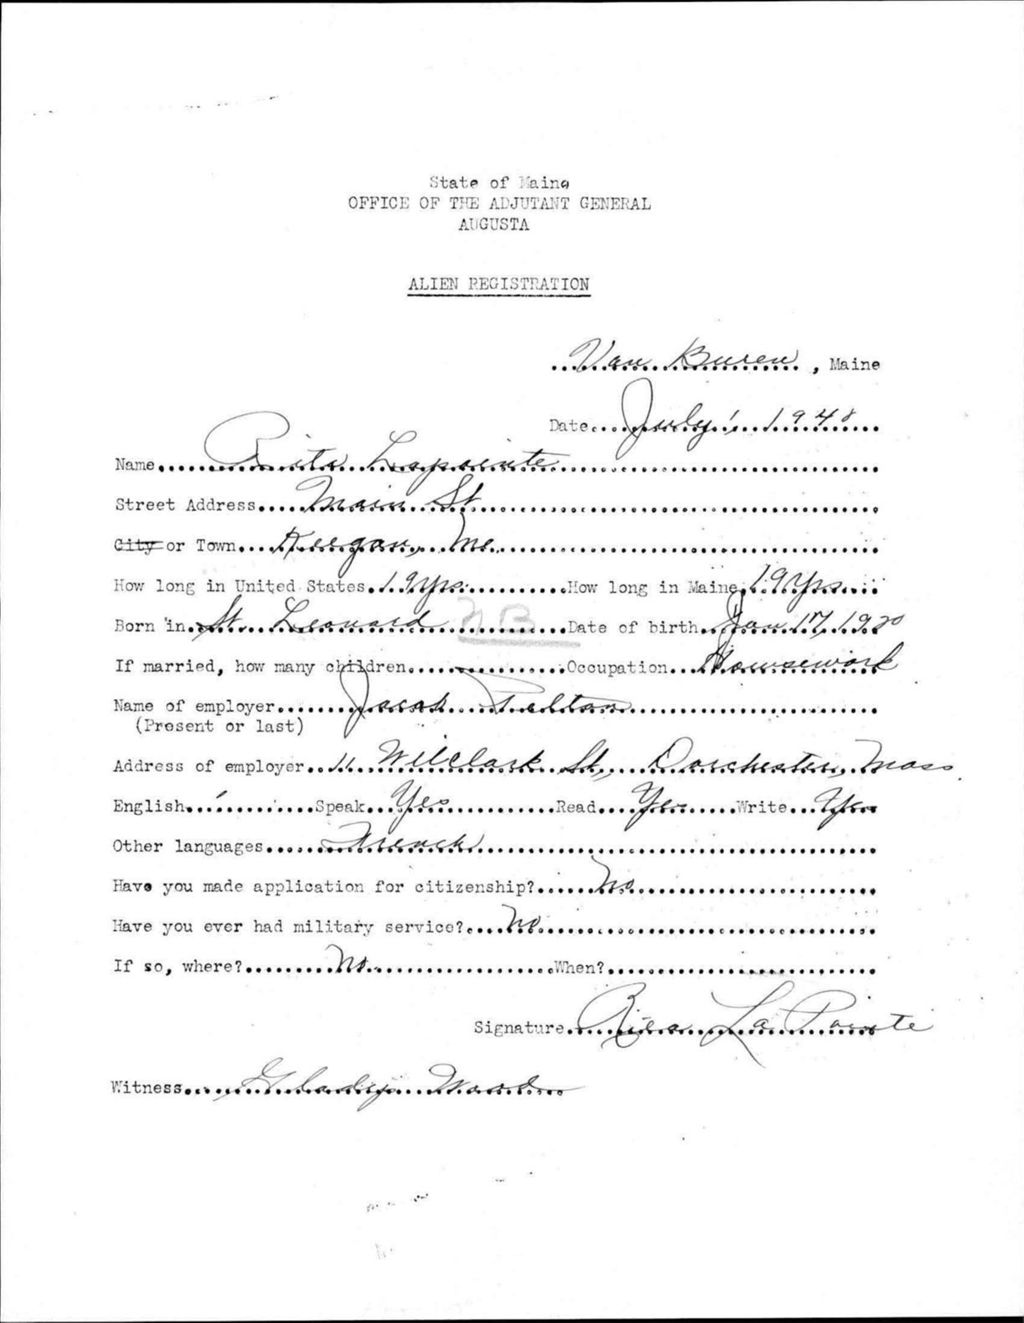 State of Maine
OFFICE OF THE ADJUTANT GENERAL
AUGUSTA
ALIEN REGISTRATION
Van Buren, Maine
Date July 1, 1940
Name Rita Lapointe
Street Address Main St
City or Town Keegan, Me.
How long in United States 19 yrs. How long in Maine 19 Yrs.
Born in St. Leonard N B Date of birth Jan 17, 1920
If married, how many children Occupation Housework
Name of employer Jacob
(Present or last)
Address of employer 11 Wellclark St., Dorchester, Mass
English Speak Yes Read Yes Write Yes
Other languages French
Have you made application for citizenship? No
Have you ever had military service? No
If so, where? No When?
Signature Rita La Pointe
Witness Gladys Wood